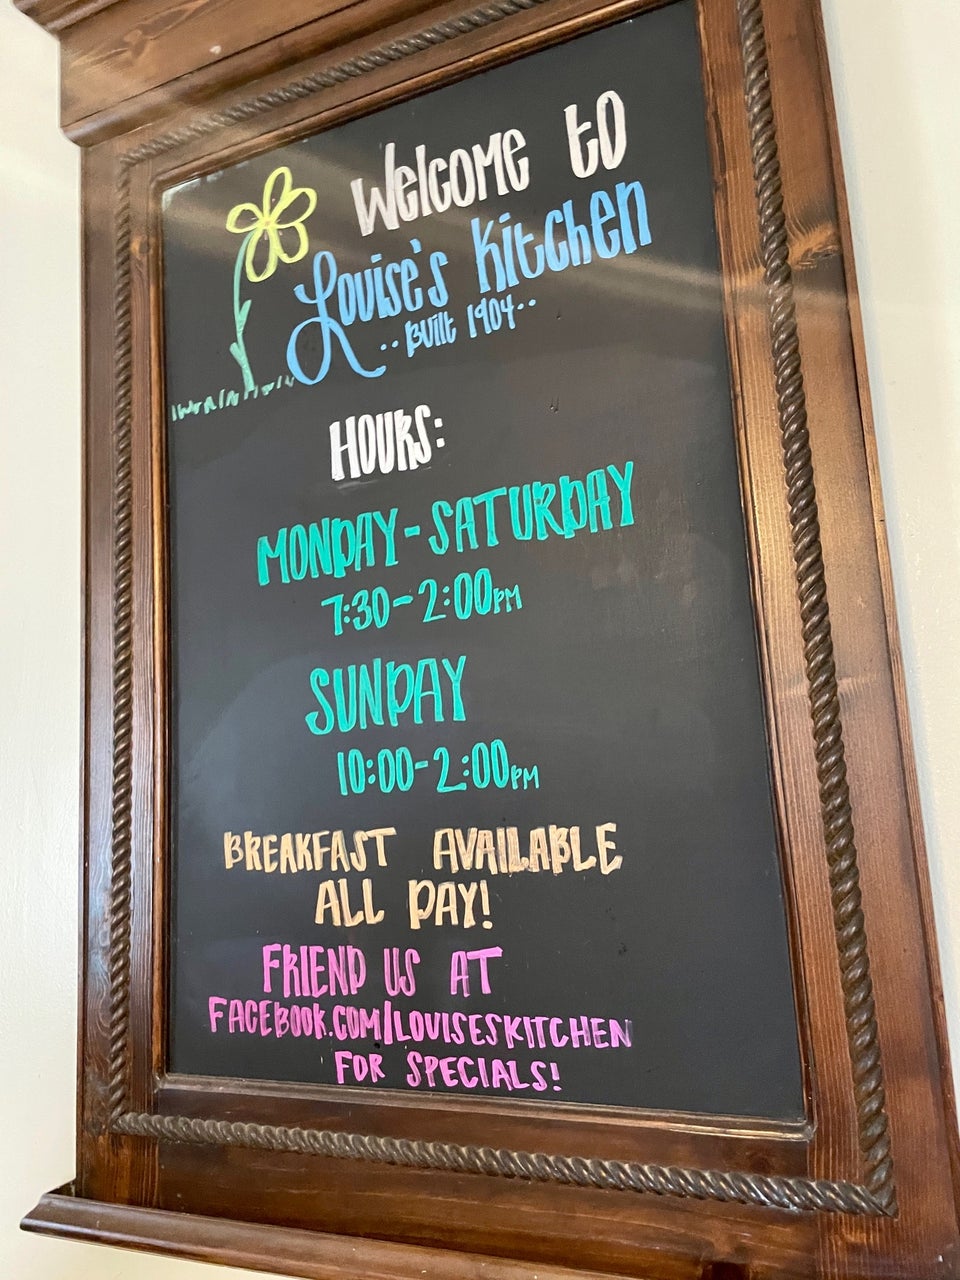 Welcome to
Louise's Kitchen
..Built 1904..
HOURS:
MONDAY-SATURDAY
7:30-2:00PM
SUNDAY
10:00-2:00PM
BREAKFAST AVAILABLE
ALL DAY!
FRIEND US AT
FACEBOOK.COM/LOUISESKITCHEN
FOR SPECIALS!